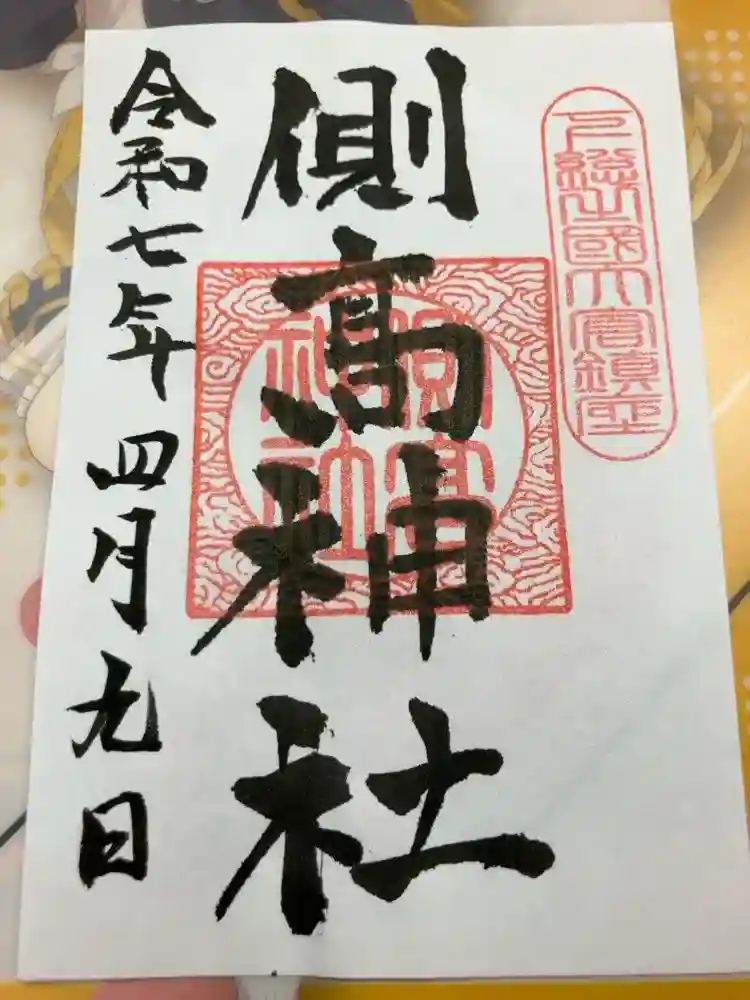 下総之國大倉鎮座
側高神社
側高神社
令和七年四月九日